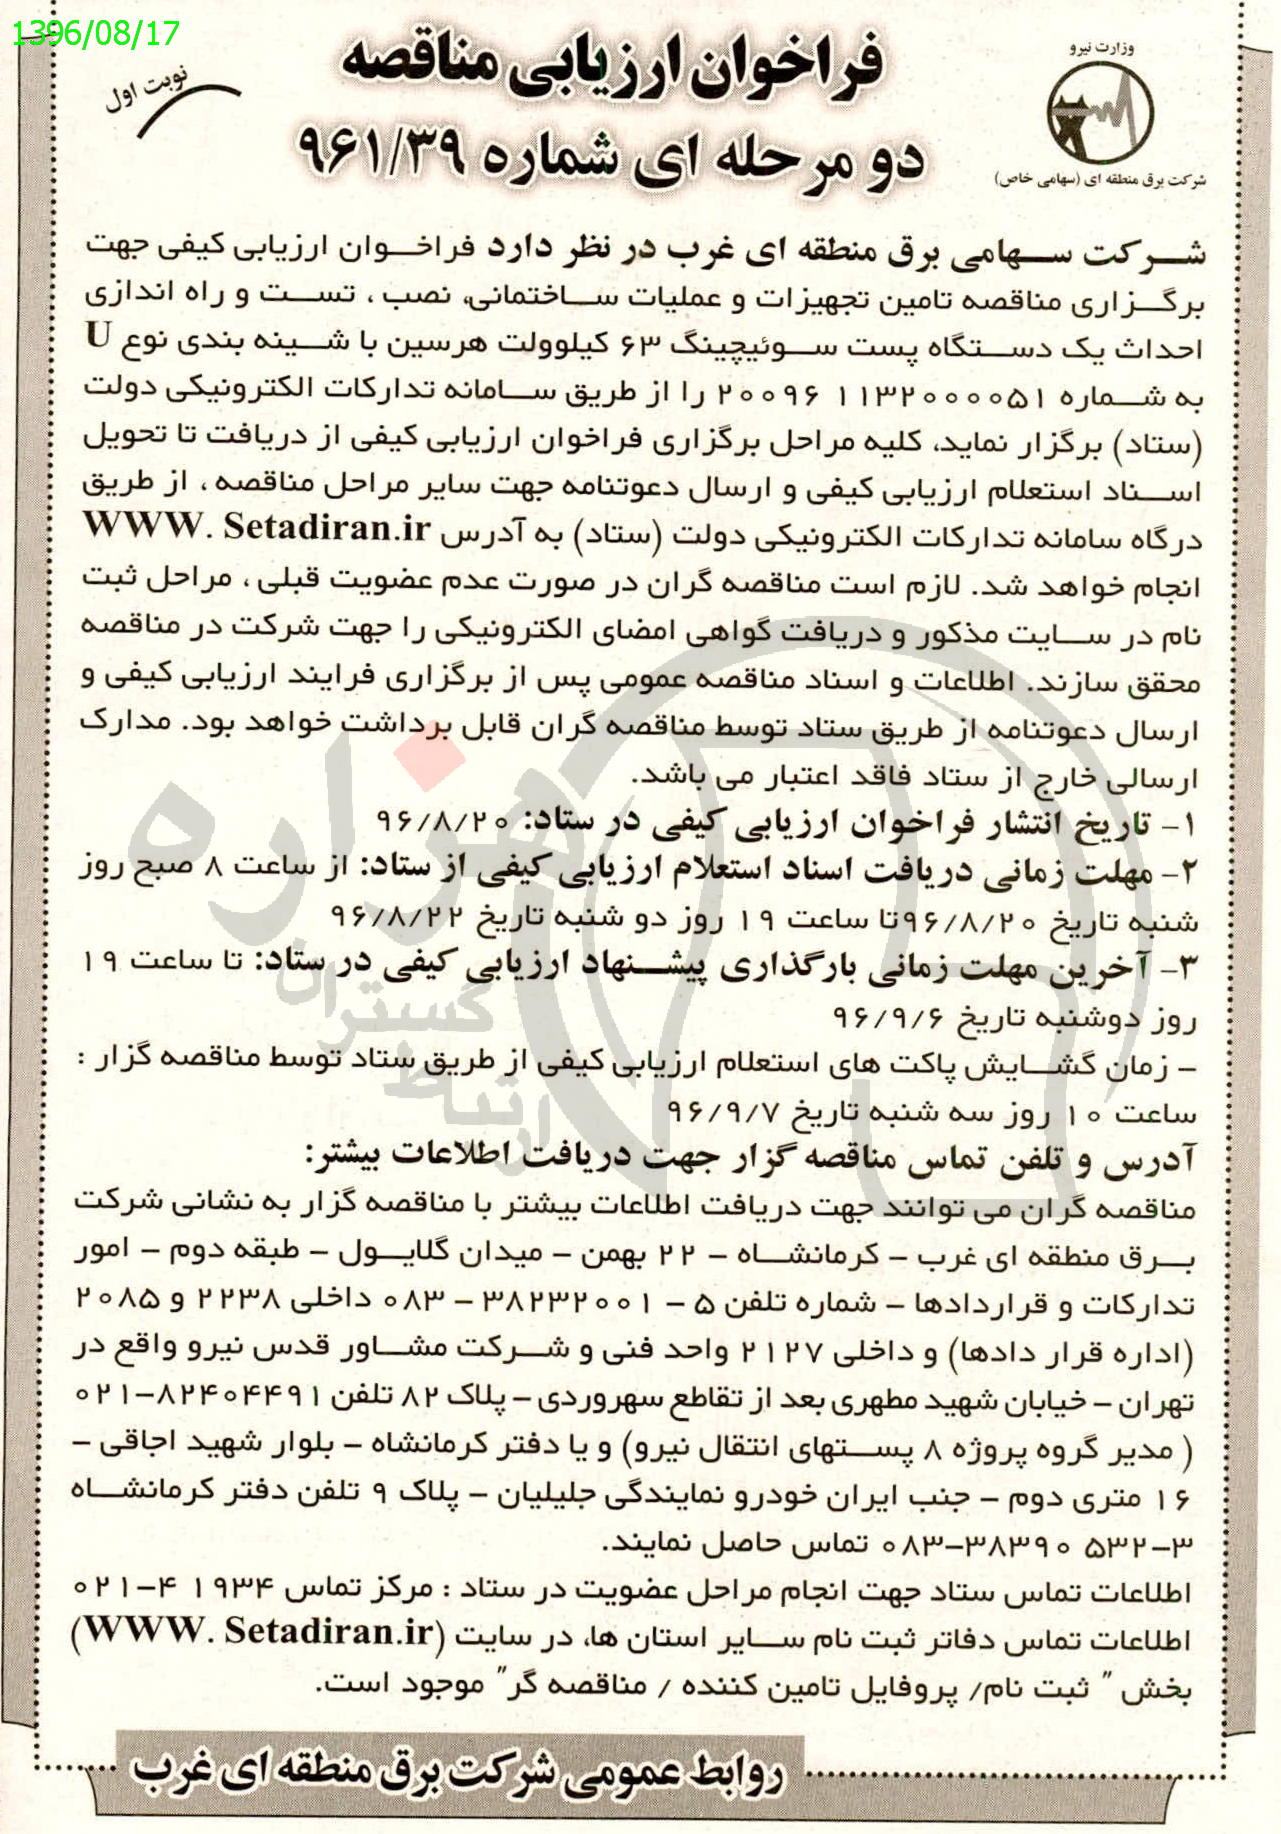 1396/08/17
وزارت نیرو
شرکت برق منطقه ای (سهامی خاص)
نوبت اول
فراخوان ارزیابی مناقصه
دو مرحله ای شماره ۹۶۱/۳۹
شرکت سهامی برق منطقه ای غرب در نظر دارد فراخوان ارزیابی کیفی جهت
برگزاری مناقصه تامین تجهیزات و عملیات ساختمانی، نصب ، تست و راه اندازی
احداث یک دستگاه پست سوئیچینگ ۶۳ کیلوولت هرسین با شینه بندی نوع U
به شماره ۲۰۰۹۶۱۱۳۲۰۰۰۰۵۱ را از طریق سامانه تدارکات الکترونیکی دولت
(ستاد) برگزار نماید، کلیه مراحل برگزاری فراخوان ارزیابی کیفی از دریافت تا تحویل
اسناد استعلام ارزیابی کیفی و ارسال دعوتنامه جهت سایر مراحل مناقصه ، از طریق
درگاه سامانه تدارکات الکترونیکی دولت (ستاد) به آدرس WWW. Setadiran.ir
انجام خواهد شد. لازم است مناقصه گران در صورت عدم عضویت قبلی ، مراحل ثبت
نام در سایت مذکور و دریافت گواهی امضای الکترونیکی را جهت شرکت در مناقصه
محقق سازند. اطلاعات و اسناد مناقصه عمومی پس از برگزاری فرایند ارزیابی کیفی و
ارسال دعوتنامه از طریق ستاد توسط مناقصه گران قابل برداشت خواهد بود. مدارک
ارسالی خارج از ستاد فاقد اعتبار می باشد.
۱- تاریخ انتشار فراخوان ارزیابی کیفی در ستاد: ۹۶/۸/۲۰
۲- مهلت زمانی دریافت اسناد استعلام ارزیابی کیفی از ستاد: از ساعت ۸ صبح روز
شنبه تاریخ ۹۶/۸/۲۰تا ساعت ۱۹ روز دو شنبه تاریخ ۹۶/۸/۲۲
۳- آخرین مهلت زمانی بارگذاری پیشنهاد ارزیابی کیفی در ستاد: تا ساعت ۱۹
روز دوشنبه تاریخ ۹۶/۹/۶
- زمان گشایش پاکت های استعلام ارزیابی کیفی از طریق ستاد توسط مناقصه گزار :
ساعت ۱۰ روز سه شنبه تاریخ ۹۶/۹/۷
آدرس و تلفن تماس مناقصه گزار جهت دریافت اطلاعات بیشتر:
مناقصه گران می توانند جهت دریافت اطلاعات بیشتر با مناقصه گزار به نشانی شرکت
برق منطقه ای غرب - کرمانشاه - ۲۲ بهمن - میدان گلایول - طبقه دوم - امور
تدارکات و قراردادها - شماره تلفن ۵ - ۳۸۲۳۲۰۰۱ - ۰۸۳ داخلی ۲۲۳۸ و ۲۰۸۵
(اداره قرار دادها) و داخلی ۲۱۲۷ واحد فنی و شرکت مشاور قدس نیرو واقع در
تهران - خیابان شهید مطهری بعد از تقاطع سهروردی - پلاک ۸۲ تلفن ۸۲۴۰۴۴۹۱-۰۲۱
( مدیر گروه پروژه ۸ پستهای انتقال نیرو) و یا دفتر کرمانشاه - بلوار شهید اجاقی -
۱۶ متری دوم - جنب ایران خودرو نمایندگی جلیلیان - پلاک ۹ تلفن دفتر کرمانشاه
۳-۵۳۲ ۳۸۳۹۰-۰۸۳ تماس حاصل نمایند.
اطلاعات تماس ستاد جهت انجام مراحل عضویت در ستاد : مرکز تماس ۴۱۹۳۴-۰۲۱
اطلاعات تماس دفاتر ثبت نام سایر استان ها، در سایت (WWW. Setadiran.ir)
بخش " ثبت نام/ پروفایل تامین کننده / مناقصه گر" موجود است.
روابط عمومی شرکت برق منطقه ای غرب
هزاره
گستران
ارتباط